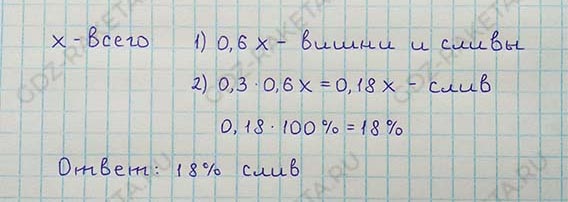 x - всего 1) 0,6 x - вишни и сливы
2) 0,3 · 0,6 x = 0,18 x - слив
0,18 · 100 % = 18 %
Ответ: 18 % слив
GDZ-RAKETA.RU